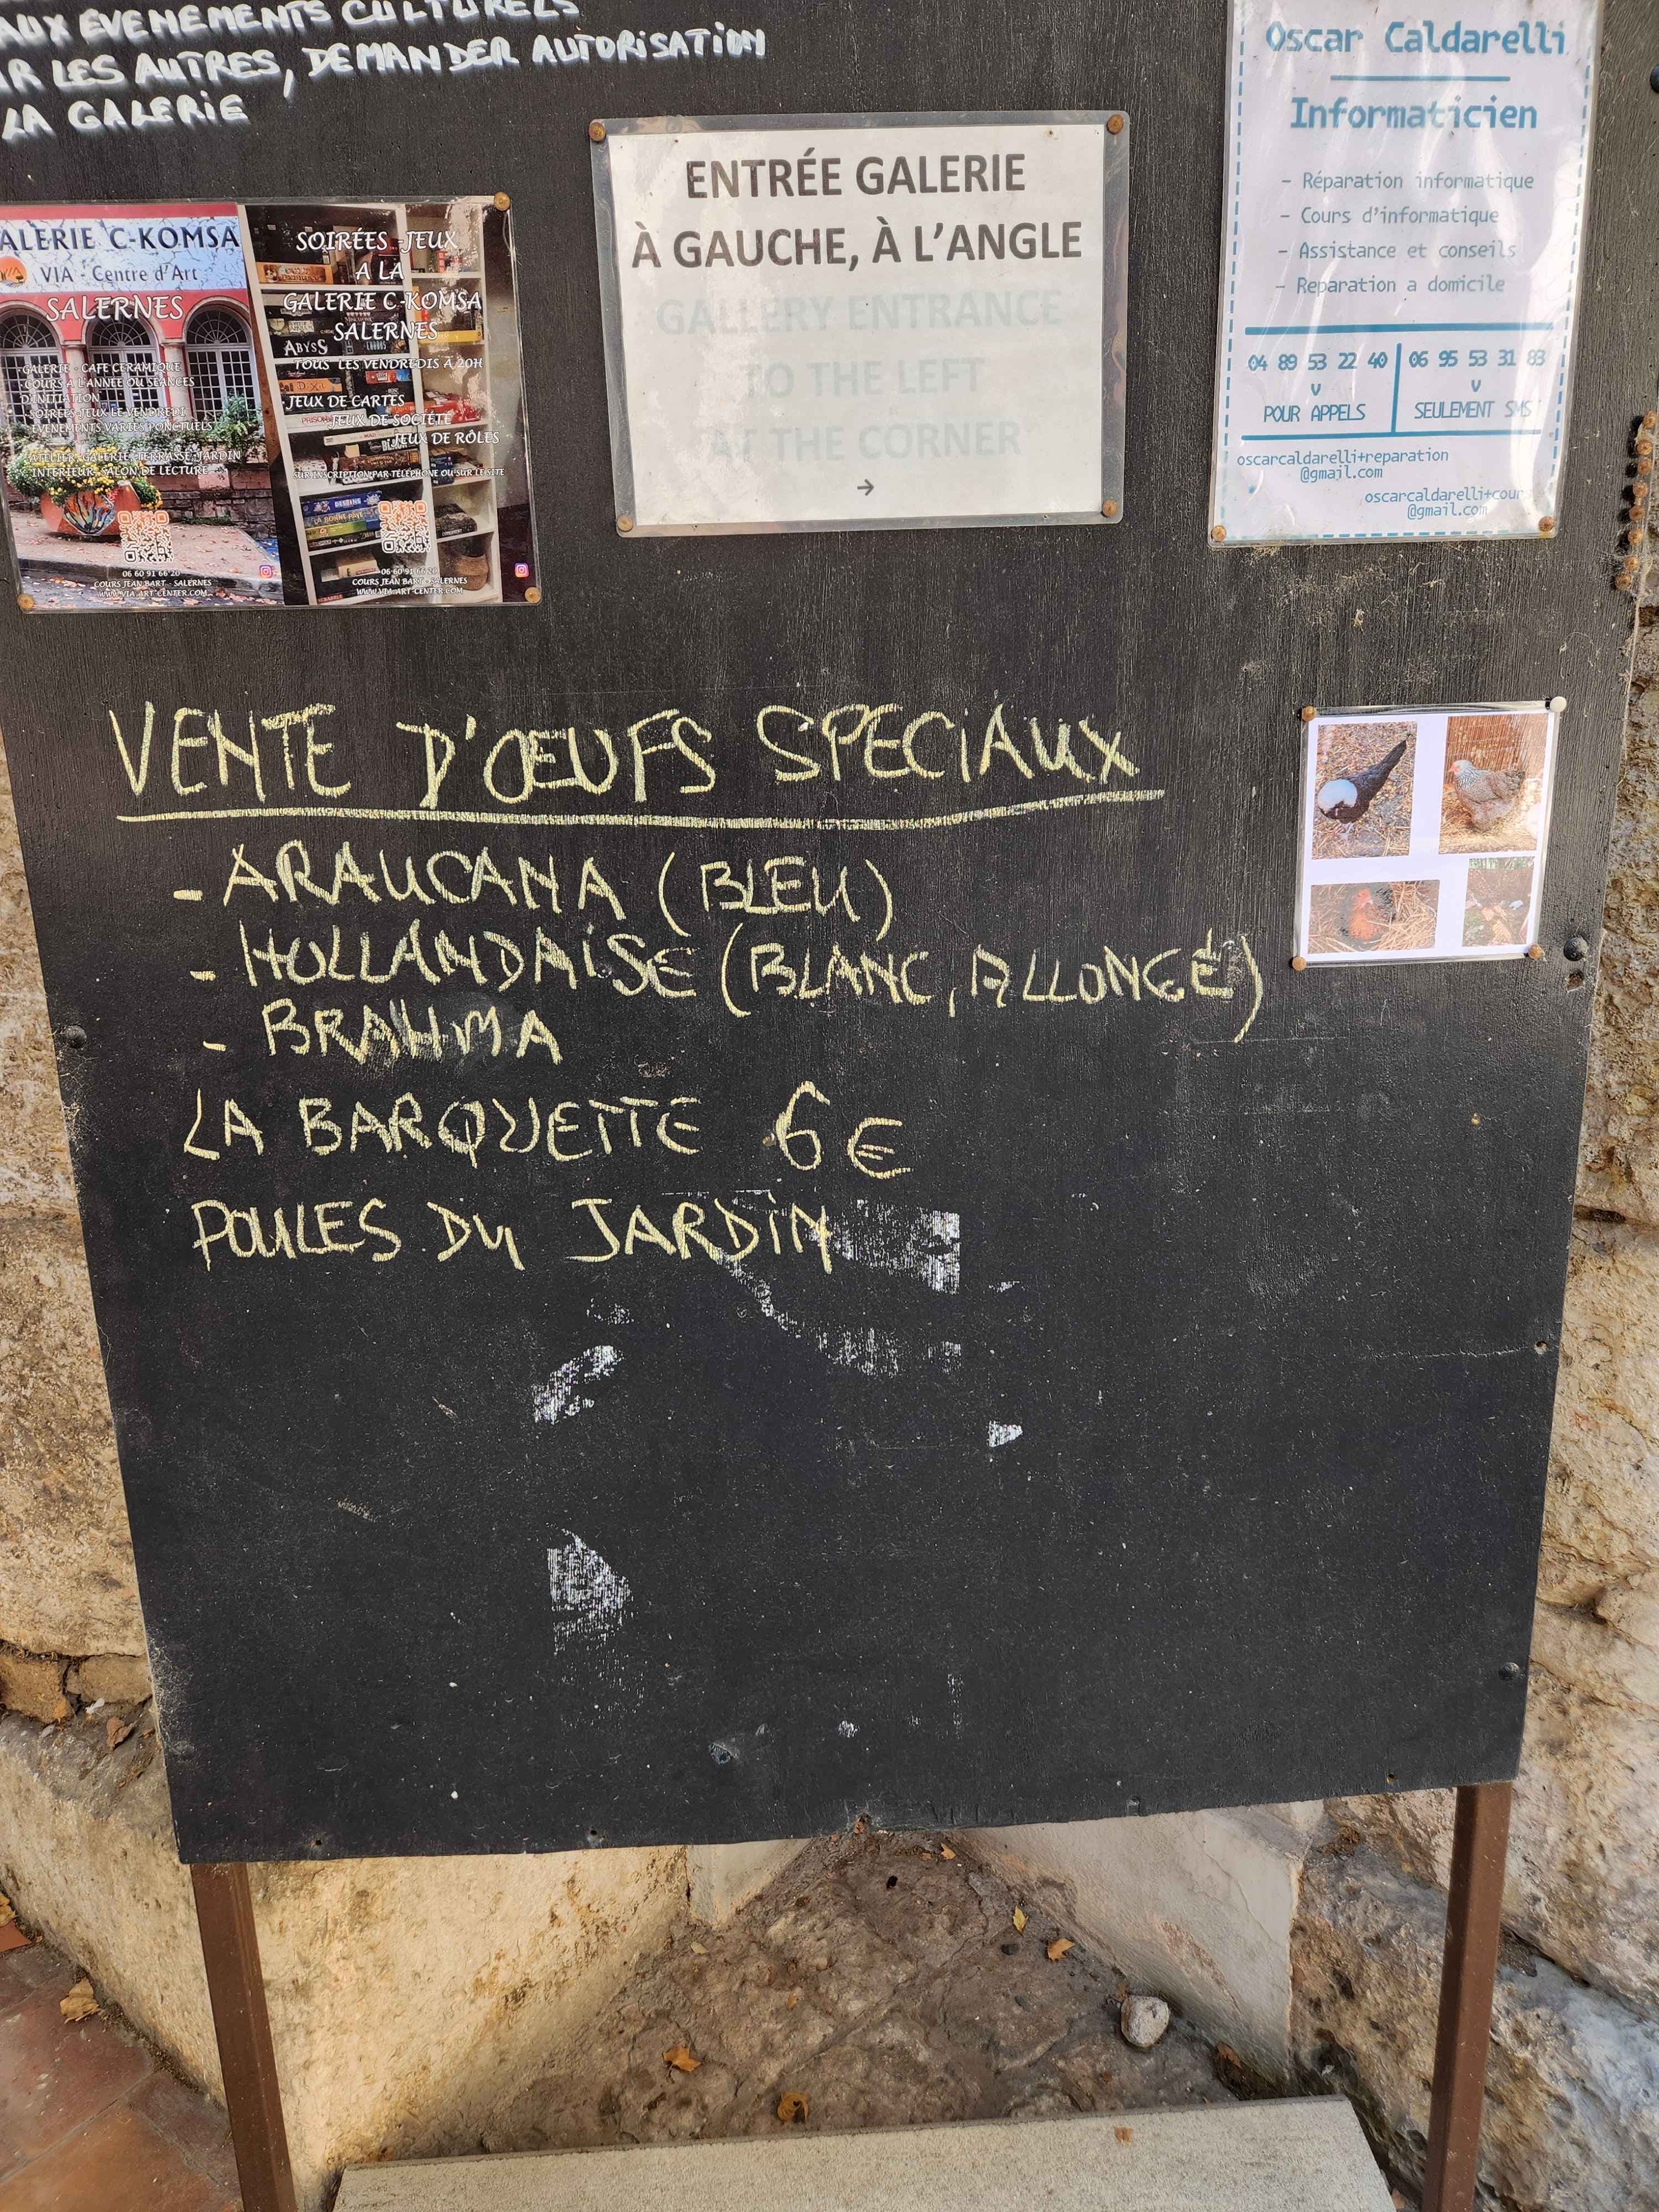 AUX EVENEMENTS CULTURELS
LES AUTRES, DEMANDER AUTORISATION
LA GALERIE
ALERIE C-KOMSA
VIA - Centre d'Art
SALERNES
- GALERIE - CAFE CERAMIQUE
- COURS A L'ANNEE OU SEANCES
D'INITIATION
- SOIREES JEUX LE VENDREDI
- EVENEMENTS VARIES PONCTUELS
ATELIER - GALERIE - TERRASSE - JARDIN
INTERIEUR - SALON DE LECTURE
06 60 91 66 20
COURS JEAN BART - SALERNES
WWW.VIA-ART-CENTER.COM
SOIRÉES JEUX
A LA
GALERIE C-KOMSA
SALERNES
TOUS LES VENDREDIS À 20H
JEUX DE CARTES
JEUX DE SOCIÉTÉ
JEUX DE RÔLES
SUR INSCRIPTION PAR TÉLÉPHONE OU SUR LE SITE
06 60 91 66 20
COURS JEAN BART - SALERNES
WWW.VIA-ART-CENTER.COM
ABYSS
DESTINS
LA BONNE PAYE
ENTRÉE GALERIE
À GAUCHE, À L'ANGLE
GALLERY ENTRANCE
TO THE LEFT
AT THE CORNER
→
Oscar Caldarelli
Informaticien
- Réparation informatique
- Cours d'informatique
- Assistance et conseils
- Reparation a domicile
04 89 53 22 40
v
POUR APPELS
06 95 53 31 83
v
SEULEMENT SMS
oscarcaldarelli+reparation
@gmail.com
oscarcaldarelli+cours
@gmail.com
VENTE D'ŒUFS SPECIAUX
- ARAUCANA (BLEU)
- HOLLANDAISE (BLANC, ALLONGÉ)
- BRAHMA
LA BARQUETTE 6€
POULES DU JARDIN